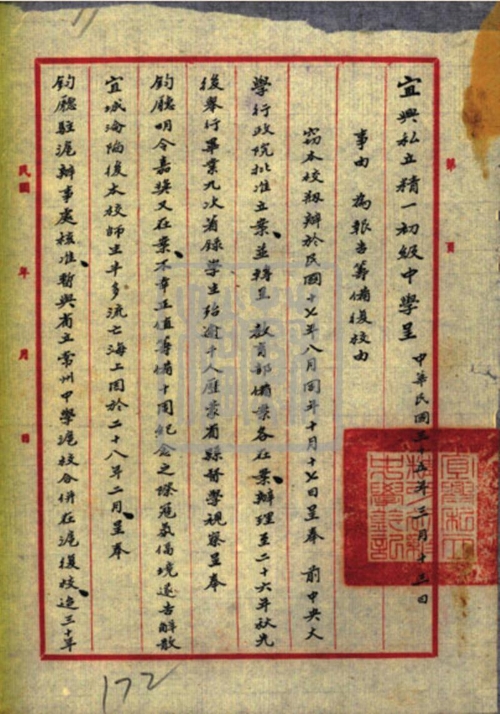 宜興私立精一初級中學呈 中華民國三十五年三月十三日
事由 為報告籌備復校由
竊本校刱辦於民國十七年八月同年十月十七日呈奉 前中央大
學行政院批准立案並轉呈 教育部備案各在案辦理至二十六年秋先
後舉行畢業九次著錄學生殆逾千人歷蒙省縣督學視察呈奉
鈞廳明令嘉獎又在案不幸正值籌備十周紀念之際寇氛偪境遂告解散
宜城淪陷後本校師生半多流亡海上因於二十八年二月呈奉
鈞廳駐滬辦事處核准暫與省立常州中學滬校合併在滬復校迨三十年
第 頁
民國 年 月 日
172